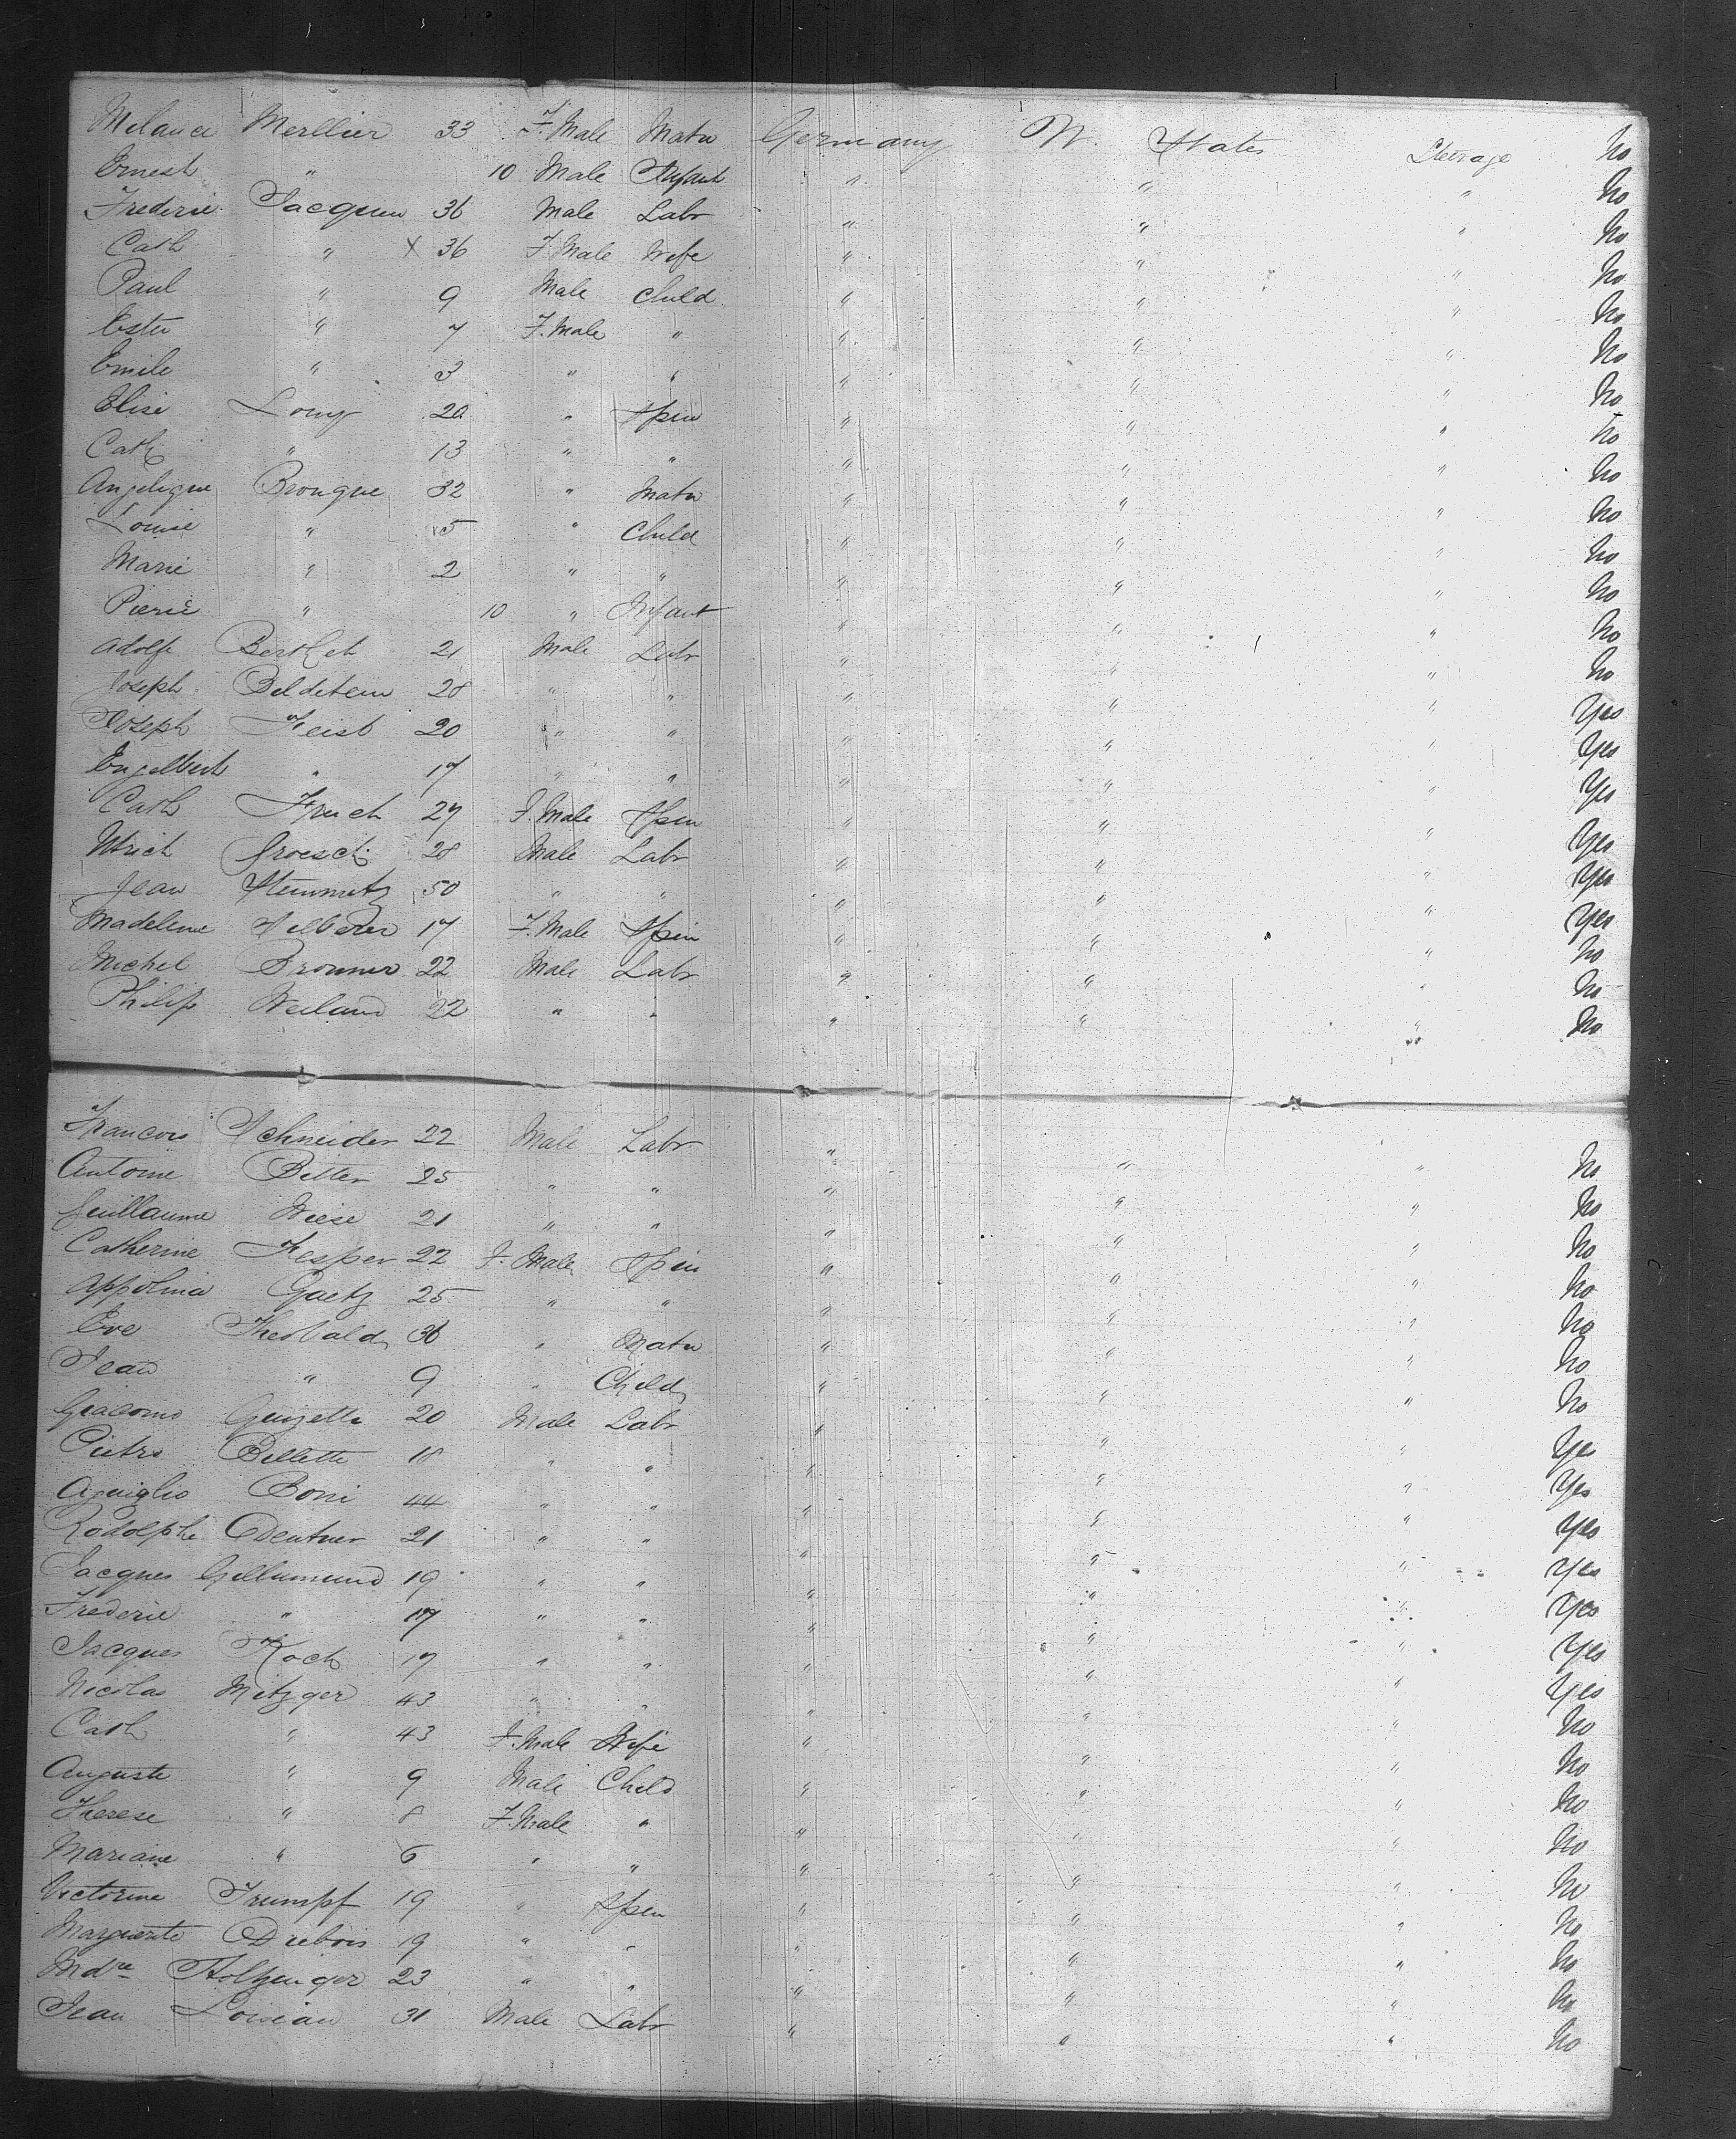 Melanie Merllier 33 F. Male Matr Germany U. States Steerage No
Ernest " 10 Male Infant " " " No
Frederic Jacquin 36 Male Labr " " " No
Cath " x 36 F. Male Wife " " " No
Paul " 9 Male Child " " " No
Ester " 7 F. Male " " " " No
Emile " 3 " " " " " No
Elise Lony 20 " Spin " " " No
Cath " 13 " " " " " No
Angelique Bronque 32 " Matr " " " No
Louise " 5 " Child " " " No
Marie " 2 " " " " " No
Pierre " 10 " Infant " " " No
Adolf Berthet 21 Male Labr " " " No
Joseph Beldstein 28 " " " " " Yes
Joseph Feist 20 " " " " " Yes
Engelbert " 17 " " " " " Yes
Cath Fruch 27 F. Male Spin " " " Yes
Ulrich Groesch 28 Male Labr " " " Yes
Jean Steinmetz 50 " " " " " Yes
Madeleine 17 F. Male Spin " " " No
Michel Bronner 22 Male Labr " " " No
Philip Weiland 22 " " " " " No
Francois Schneider 22 Male Labr " " " No
Antoine Better 25 " " " " " No
Guillaume Wiese 21 " " " " " No
Catherine Kesper 22 F. Male Spin " " " No
Appolina Goetz 25 " " " " " No
Eve Theobald 36 " Matr " " " No
Jean " 9 " Child " " " No
Giacomo Guizetti 20 Male Labr " " " Yes
Pietro Billetti 18 " " " " " Yes
Aquiglio Boni 44 " " " " " Yes
Rodolphe Dentner 21 " " " " " Yes
Jacques Gellumund 19 " " " " " Yes
Frederic " 17 " " " " " Yes
Jacques Koch 17 " " " " " Yes
Nicolas Metzger 43 " " " " " No
Cath " 43 F. Male Wife " " " No
Auguste " 9 Male Child " " " No
Therese " 8 F. Male " " " " No
Mariane " 6 " " " " " No
Victorine Trumpf 19 " Spin " " " No
Marguerite Dubois 19 " " " " " No
Mdre Holzinger 23 " " " " " No
Jean Loisian 31 Male Labr " " " No